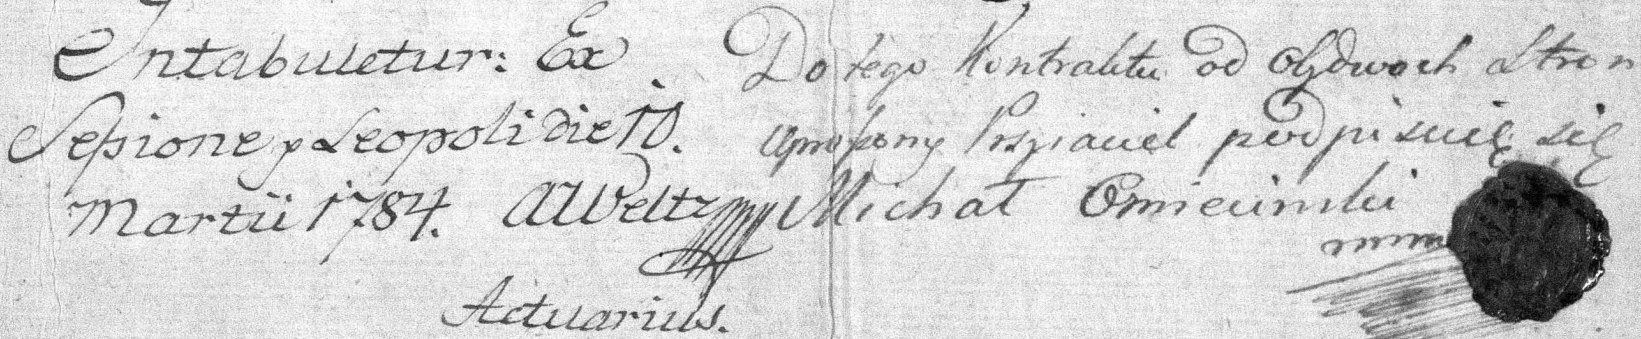 Intabuletur: Ex
Sessione Leopoli die 10.
Martii 1784. AWeltz
Actuarius.
Do tego Kontraktu od obydwoch Stron
uproszony Przyiaciel podpisuię się
Michał Omieciński